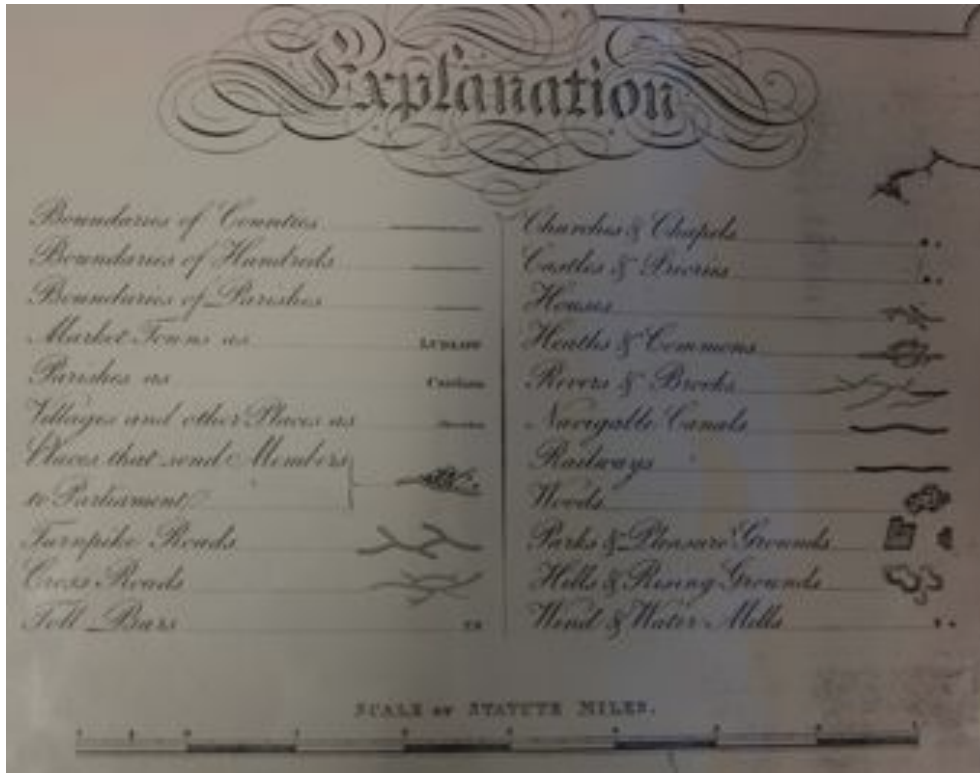 Explanation
Boundaries of Counties
Boundaries of Hundreds
Boundaries of Parishes
Market Towns as LUDLOW
Parishes as
Villages and other Places as
Places that send Members
to Parliament
Turnpike Roads
Cross Roads
Toll Bars
Churches & Chapels
Castles & Priories
Houses
Heaths & Commons
Rivers & Brooks
Navigable Canals
Railways
Woods
Parks & Pleasure Grounds
Hills & Rising Grounds
Wind & Water Mills
SCALE OF STATUTE MILES.